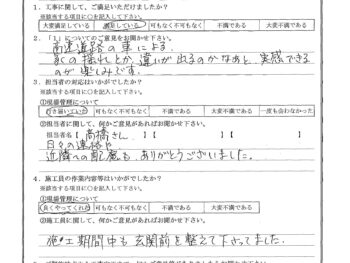 1．工事に関して、ご満足いただけましたか？
※該当する項目に○を記入して下さい。
大変満足している 満足している 可も無く不可も無く 不満である 大変不満である
2．「1」についてのご意見をお聞かせ下さい。
高速道路の車による、
家の揺れとか、違いが出るのかなあと、実感できる
のが楽しみです。
3．担当者の対応はいかがでしたか？
※該当する項目に○を記入して下さい。
①現場管理について
行き届いていた 可もなく不可もなく 不満である 大変不満である 一度も会わなかった
②現場管理に関して、何かご意見があればお聞かせ下さい。
担当者名【 高橋さん 】【 】【 】
日々の連絡や
近隣への配慮も、ありがとうございました。
4．施工員の作業内容等はいかがでしたか？
※該当する項目に○を記入して下さい。
①現場管理について
良くやってくれた 可もなく不可もなく 不満である 大変不満である
②施工員に関して、何かご意見があればお聞かせ下さい。
施工期間中も玄関前を整えて下さってました。